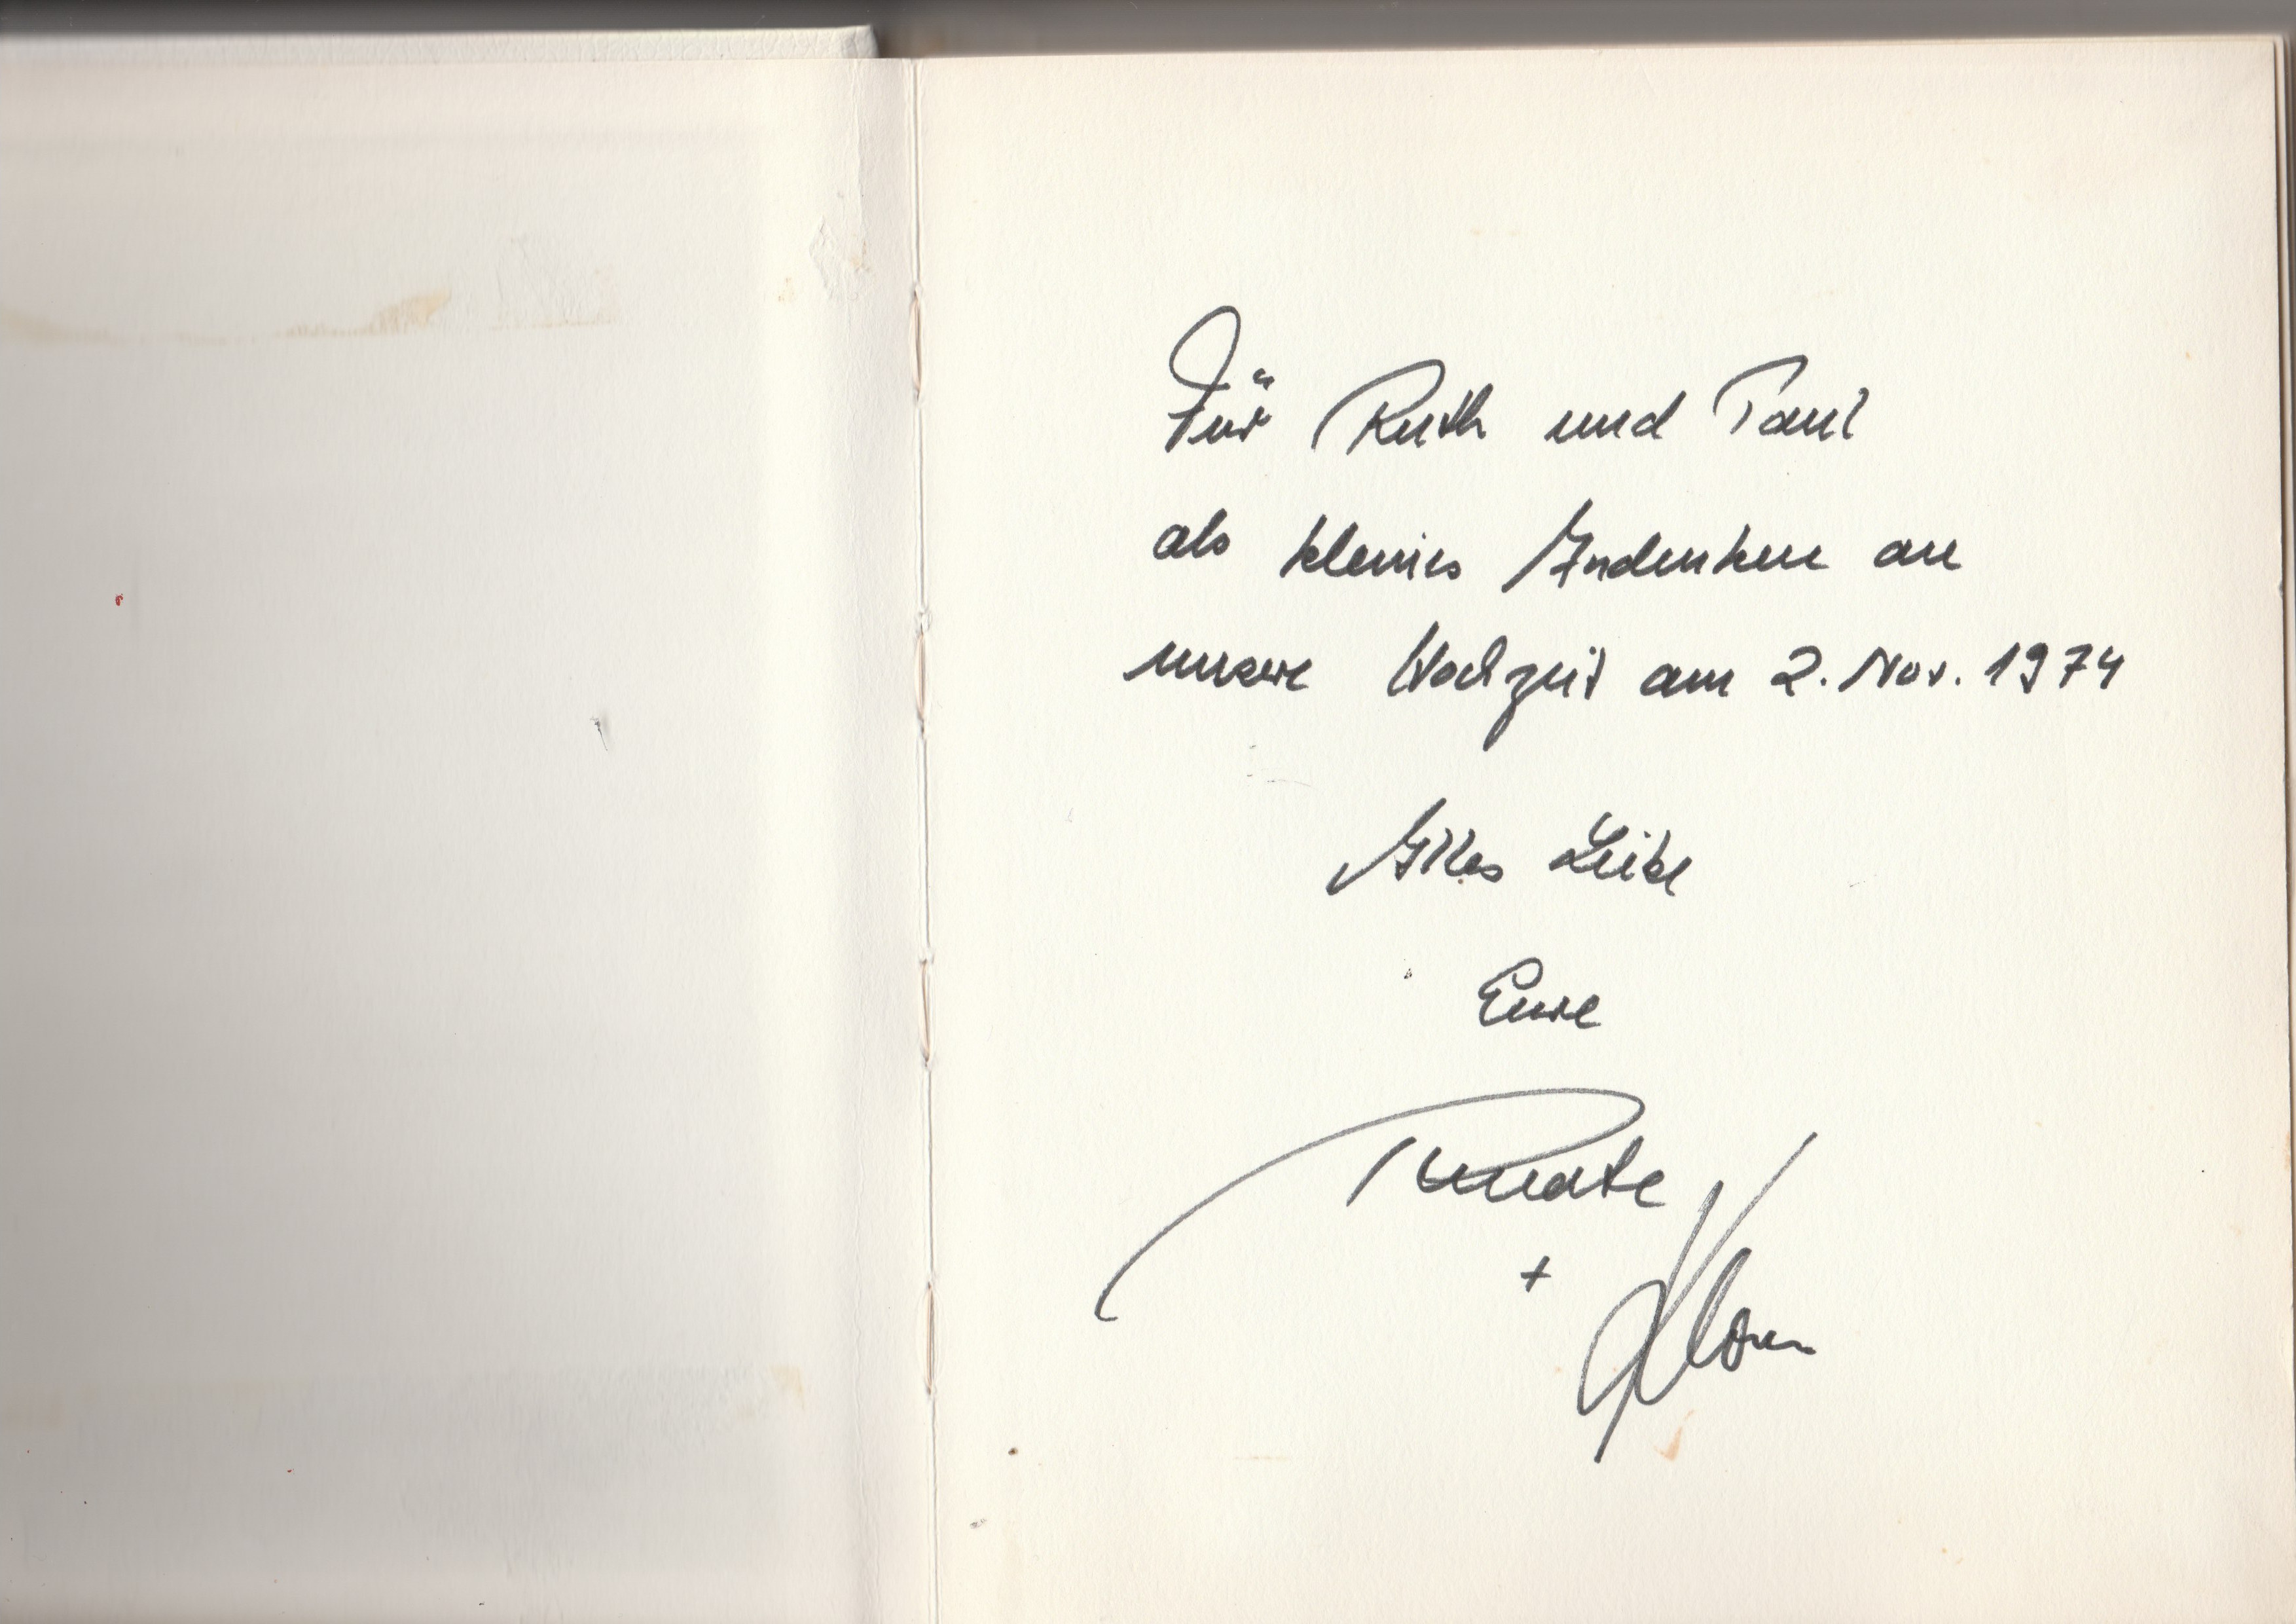 Für Ruth und Paul
als kleines Andenken an
unsere Hochzeit am 2. Nov. 1974
Alles Liebe
Eure
Renate
+